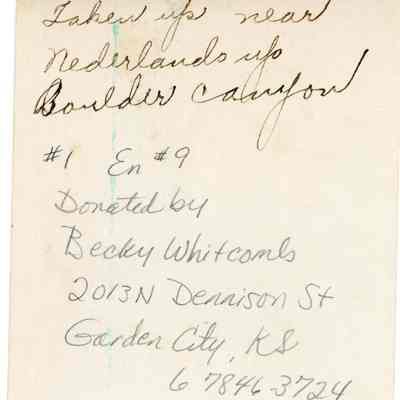 Taken up near
Nederlands up
Boulder canyon
#1 En #9
Donated by
Becky Whitcomb
2013 N Dennison St
Garden City, KS
6 7846-3724